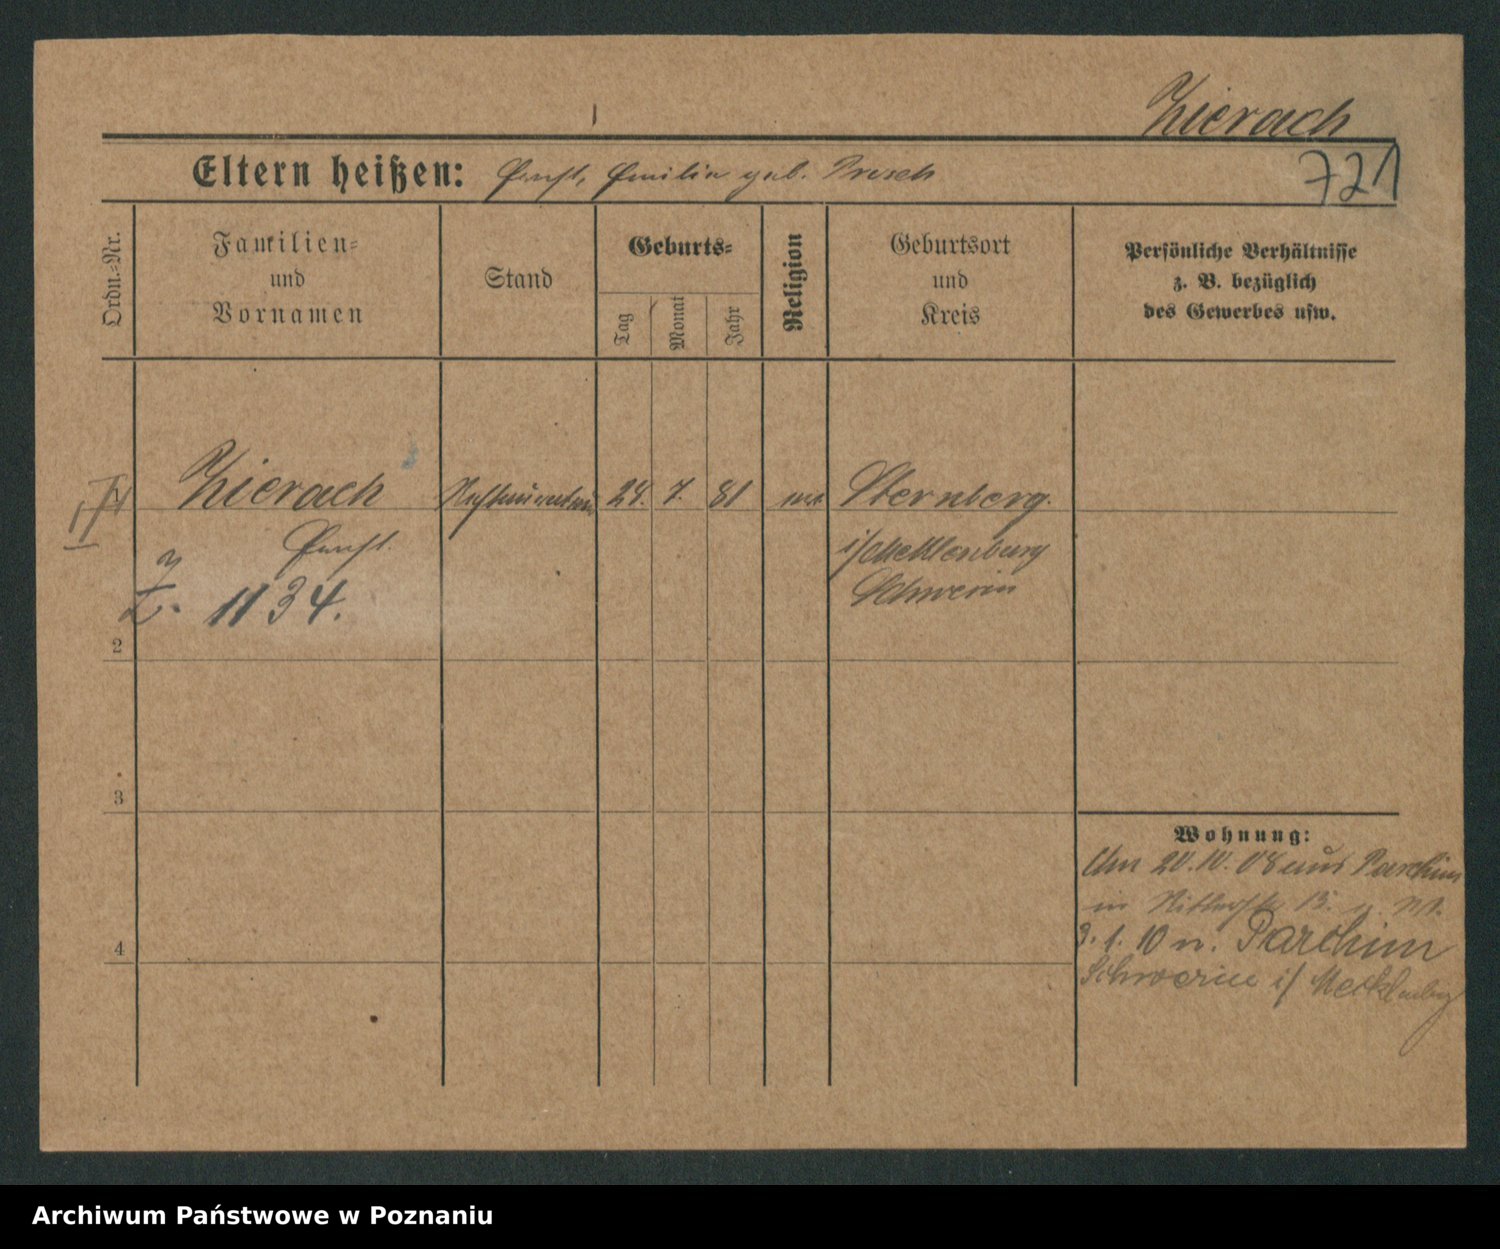 Zierach
721
Eltern heißen: Ernst, Emilie geb. Presch
Ordn.=Nr.
Familien=
und
Vornamen
Stand
Geburts=
Tag
Monat
Jahr
Religion
Geburtsort
und
Kreis
Persönliche Verhältnisse
z. B. bezüglich
des Gewerbes usw.
Zierach
28. 7. 81
Sternberg.
Ernst.
i/Mecklenburg
Schwerin
Z. 1134.
2
3
4
Wohnung:
Am 20.10.08 aus Parchim
in 13.
3. 1. 10 n. Parchim
Schwerin i/ Mecklenbg
Archiwum Państwowe w Poznaniu